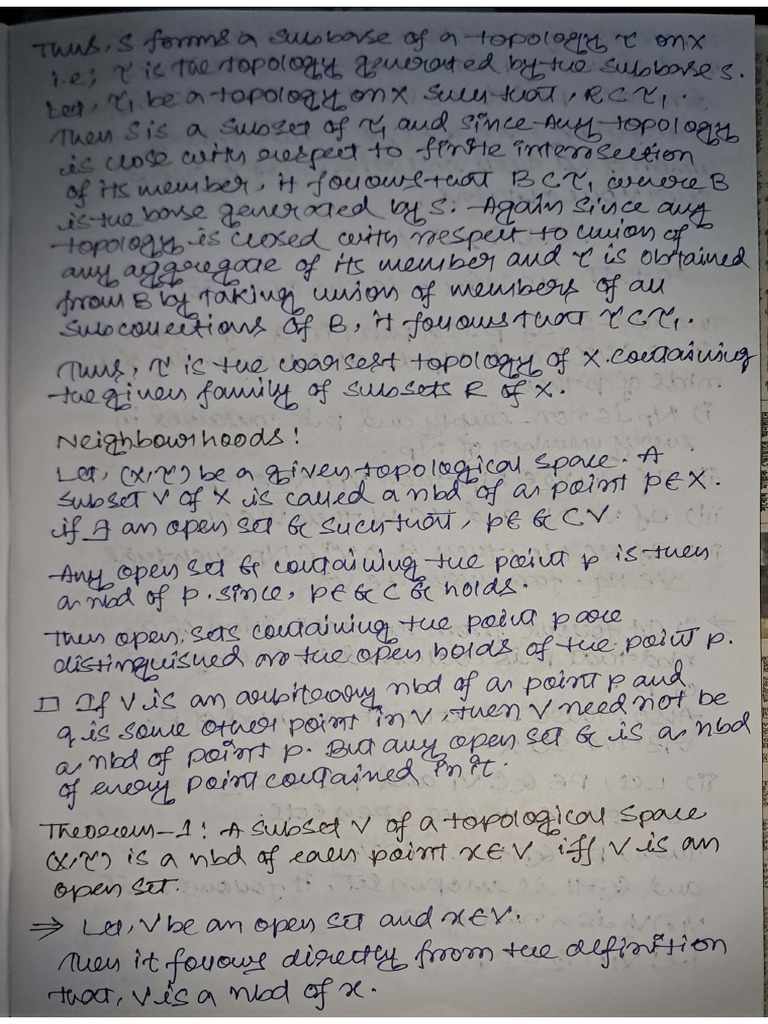 Thus, S forms a subbase of a topology τ on X
i.e; τ is the topology generated by the subbase S.
Let, τ₁ be a topology on X such that, R⊂τ₁.
Then S is a subset of τ₁ and since Any topology
is close with respect to finite intersection
of its member, it follows that B⊂τ₁ where B
is the base generated by S. Again since any
topology is closed with respect to union of
any aggregate of its member and τ is obtained
from B by taking union of members of all
subcollections of B, it follows that τ⊂τ₁.
Thus, τ is the coarsest topology of X containing
the given family of subsets R of X.
Neighbourhoods!
Let, (X,τ) be a given topological space. A
subset V of X is called a nbd of a point p∈X.
if ∃ an open set G such that, p∈G⊂V.
Any open set G containing the point p is then
a nbd of p. since, p∈G⊂G holds.
Then open sets containing the point p are
distinguished as the open nbds of the point p.
□ If V is an arbitrary nbd of a point p and
q is some other point in V, then V need not be
a nbd of point p. But any open set G is a nbd
of every point contained in it.
Theorem-1: A subset V of a topological space
(X,τ) is a nbd of each point x∈V iff V is an
open set.
⇒ Let, V be an open set and x∈V.
Then it follows directly from the definition
that, V is a nbd of x.